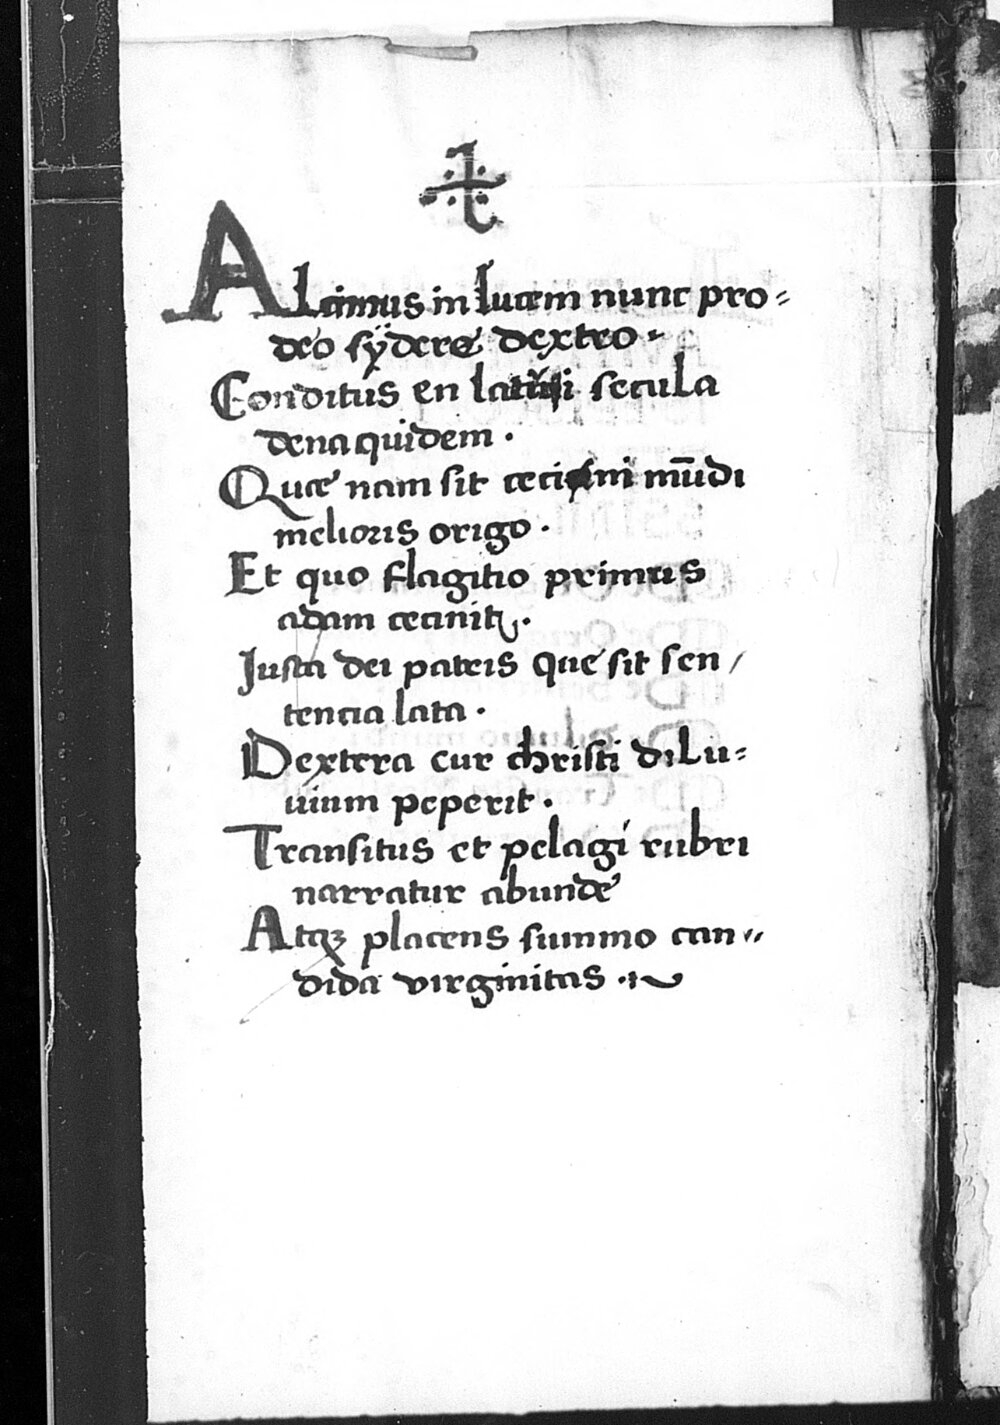 Alcimus in lucem nunc pro=
deo sÿdere dextro.
Conditus en latui secula
dena quidem.
Quae nam sit cecini mūdi
melioris origo.
Et quo flagitio primus
adam cecinit.
Justa dei patris que sit sen/
tencia lata.
Dextera cur christi dilu=
uium peperit.
Transitus et pelagi rubri
narratur abunde
Atqꝫ placens summo can=
dida virginitas.